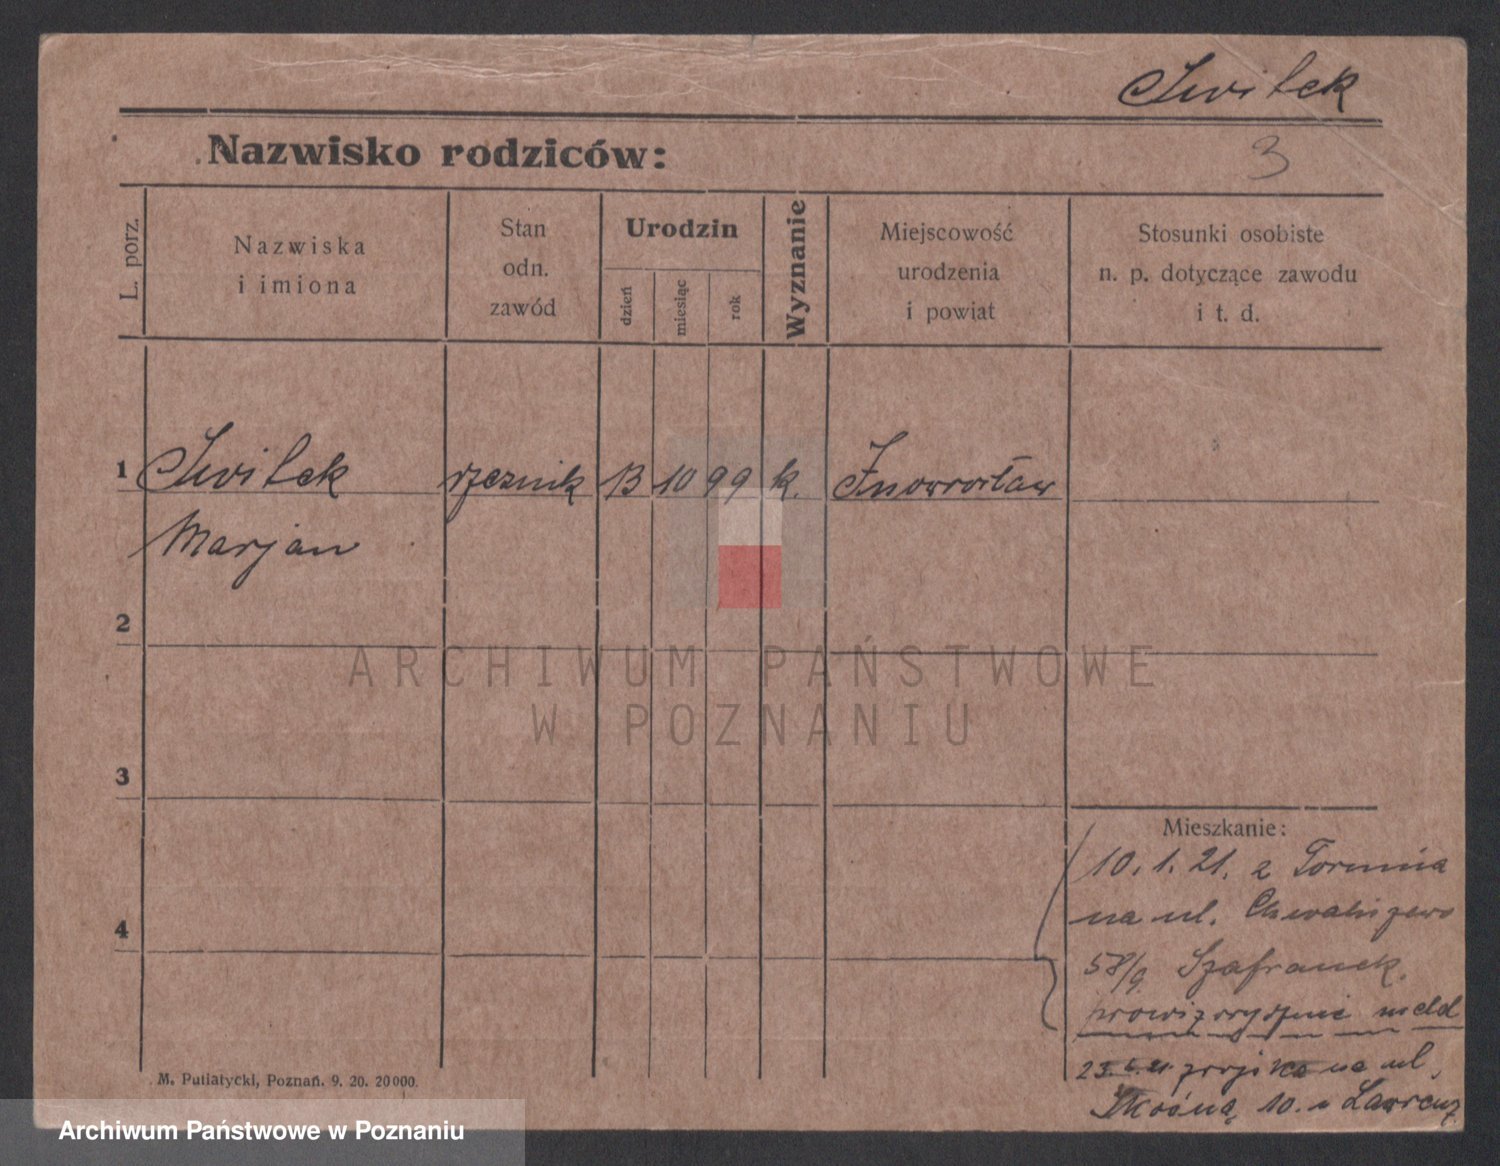 Świtek
3
Nazwisko rodziców:
L. porz.
Nazwiska
i imiona
Stan
odn.
zawód
Urodzin
dzień
miesiąc
rok
Wyznanie
Miejscowość
urodzenia
i powiat
Stosunki osobiste
n. p. dotyczące zawodu
i t. d.
1 Świtek rzeznik 13 10 99 k. Inowrocław
Marjan
2
3
4
Mieszkanie:
10. 1. 21. z Torunia
na ul. Chwaliszewo
58/9 Szafranek.
prowizorycznie meld
na ul,
10. u Lawrenz
M. Putiatycki, Poznań. 9. 20. 20000.
ARCHIWUM PAŃSTWOWE
W POZNANIU
Archiwum Państwowe w Poznaniu